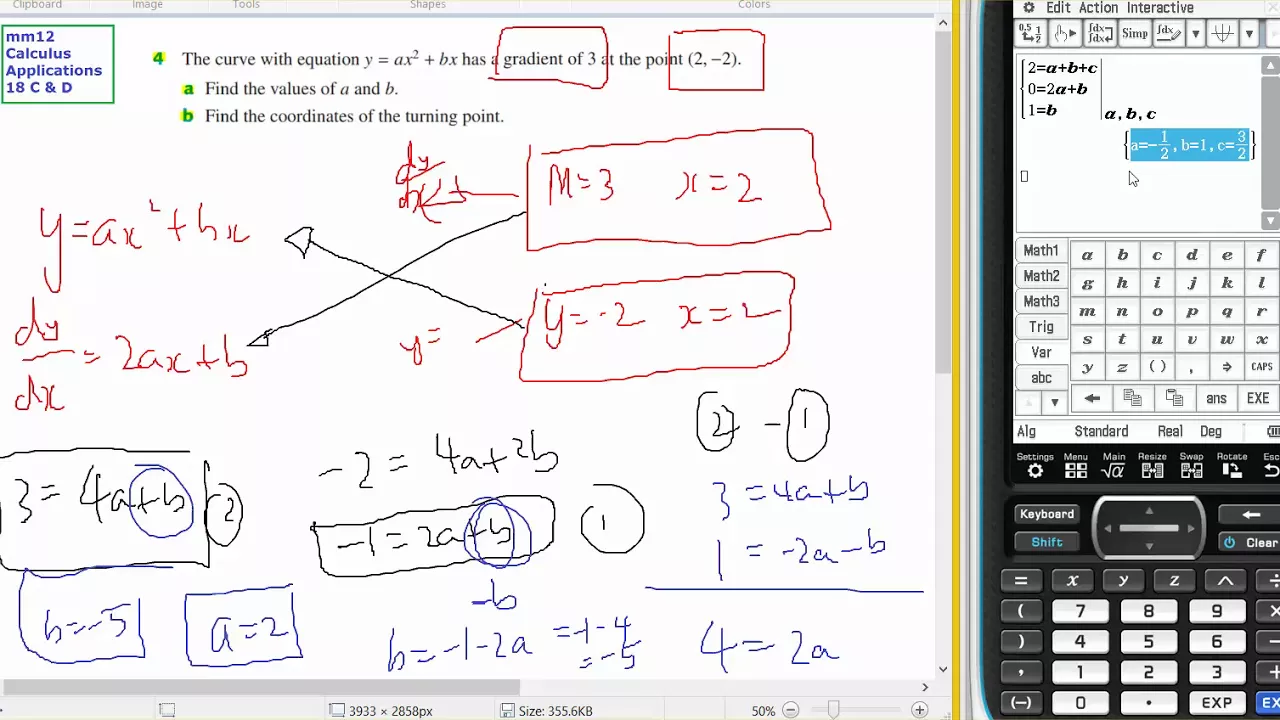 Image Tools Shapes Colors
mm12
Calculus
Applications
18 C & D
4 The curve with equation y = ax² + bx has a gradient of 3 at the point (2, −2).
a Find the values of a and b.
b Find the coordinates of the turning point.
dy/dx
M=3 x=2
y=ax²+bx
y=-2 x=2
y=
dy/dx = 2ax+b
② - ①
-2 = 4a+2b
3 = 4a+b ②
3 = 4a+b
-1 = 2a+b ①
1 = -2a-b
-b
b=-5 a=2
b=-1-2a =-1-4
=-5
4 = 2a
3933 × 2858px Size: 355.6KB 50%
Edit Action Interactive
0.5 1/2 ∫dx Simp ∫dx
2=a+b+c
0=2a+b
1=b
a, b, c
{a=-1/2, b=1, c=3/2}
Math1 a b c d e f
Math2 g h i j k l
Math3 m n o p q r
Trig s t u v w x
Var y z ( ) , ⇒ CAPS
abc ans EXE
Alg Standard Real Deg
Settings Menu Main Resize Swap Rotate Esc
√α
Keyboard
Shift Clear
= x y z ^ ÷
( 7 8 9 ×
) 4 5 6 −
, 1 2 3 +
(−) 0 . EXP EX